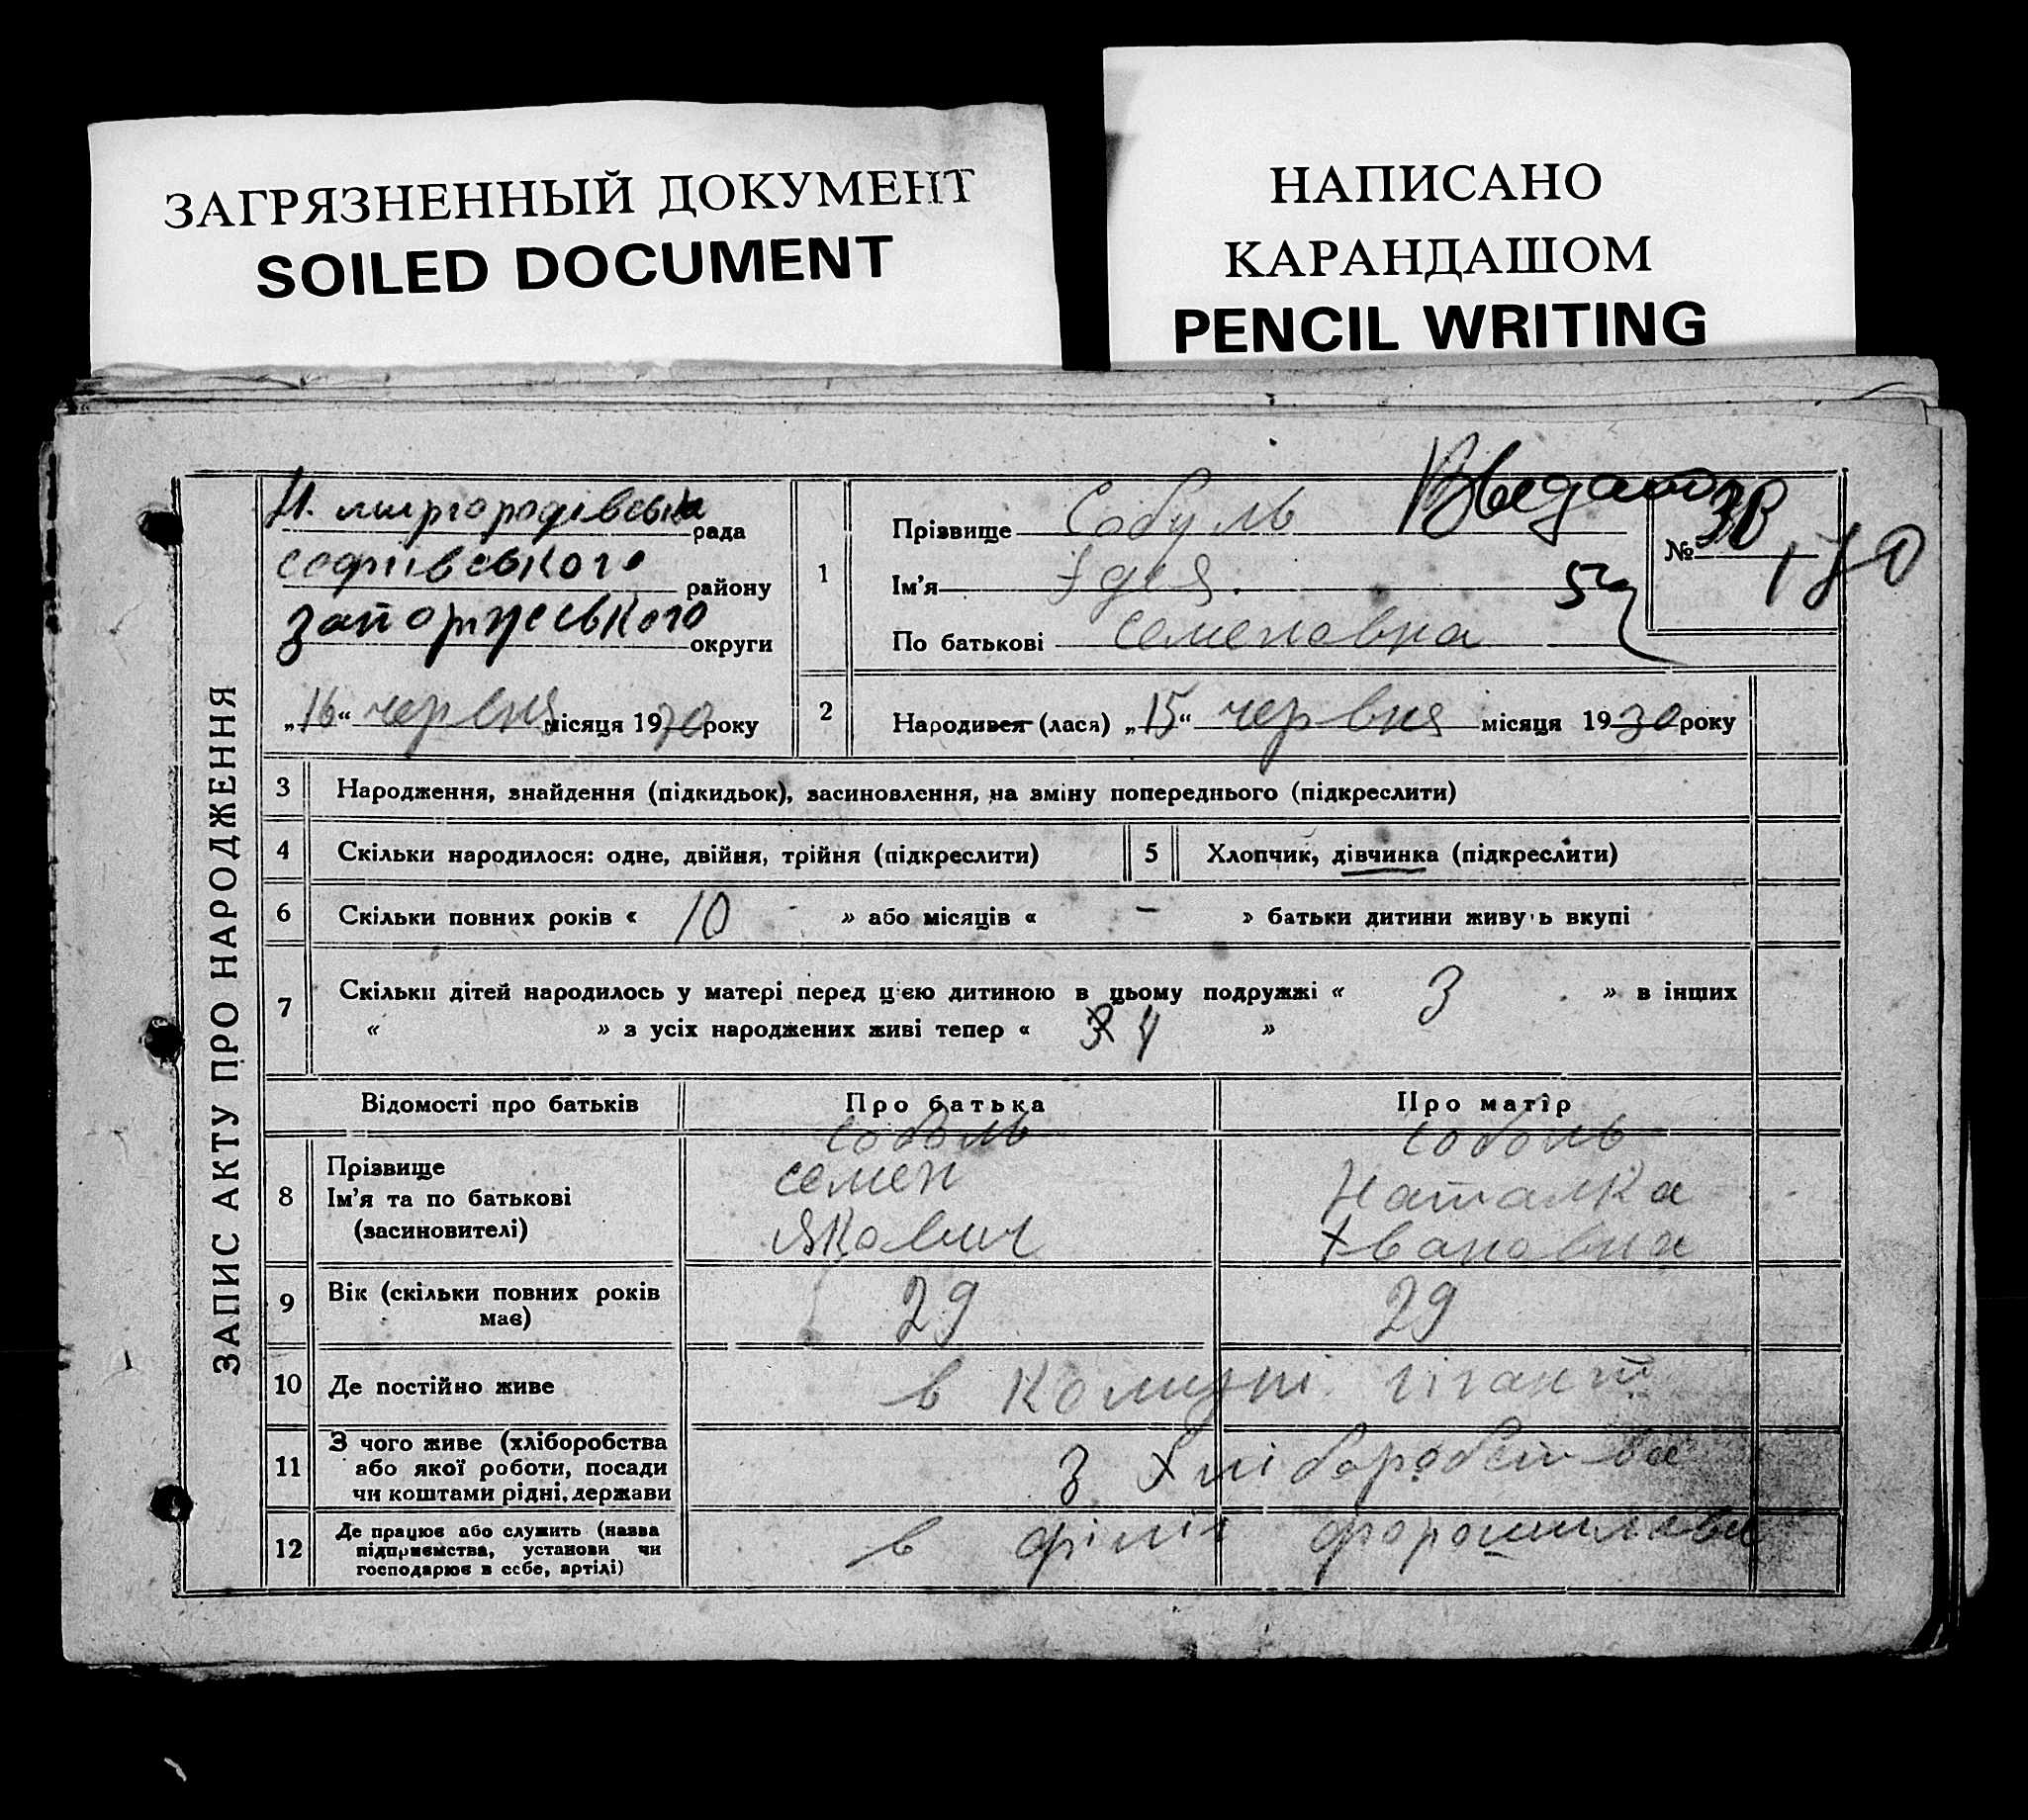 ЗАГРЯЗНЕННЫЙ ДОКУМЕНТ
SOILED DOCUMENT
НАПИСАНО
КАРАНДАШОМ
PENCIL WRITING
ЗАПИС АКТУ ПРО НАРОДЖЕННЯ
Н. миргородівська рада
софіівського району
округи
„16“ червня місяця 1930 року
1
Прізвище Соболь
Ім'я Ідея.
По батькові Семеновна
№ 38
170
2
Народився (лася) „15“ червня місяця 1930 року
3 Народження, знайдення (підкидьок), засиновлення, на зміну попереднього (підкреслити)
4 Скільки народилося: одне, двійня, трійня (підкреслити) 5 Хлопчик, дівчинка (підкреслити)
6 Скільки повних років « 10 » або місяців « – » батьки дитини живуть вкупі
7 Скільки дітей народилось у матері перед цією дитиною в цьому подружжі « 3 » в інших
« » з усіх народжених живі тепер « 3 4 »
Відомості про батьків Про батька Про матір
8 Прізвище Соболь Соболь
Ім'я та по батькові Семен Наталка
(засиновителі) Якович Івановна
9 Вік (скільки повних років має) 29 29
10 Де постійно живе в комуні гігант
11 З чого живе (хліборобства
або якої роботи, посади
чи коштами рідні, держави
з хліборобства
12 Де працює або служить (назва
підприємства, установи чи
господарює в себе, артілі)
в філії форошилова